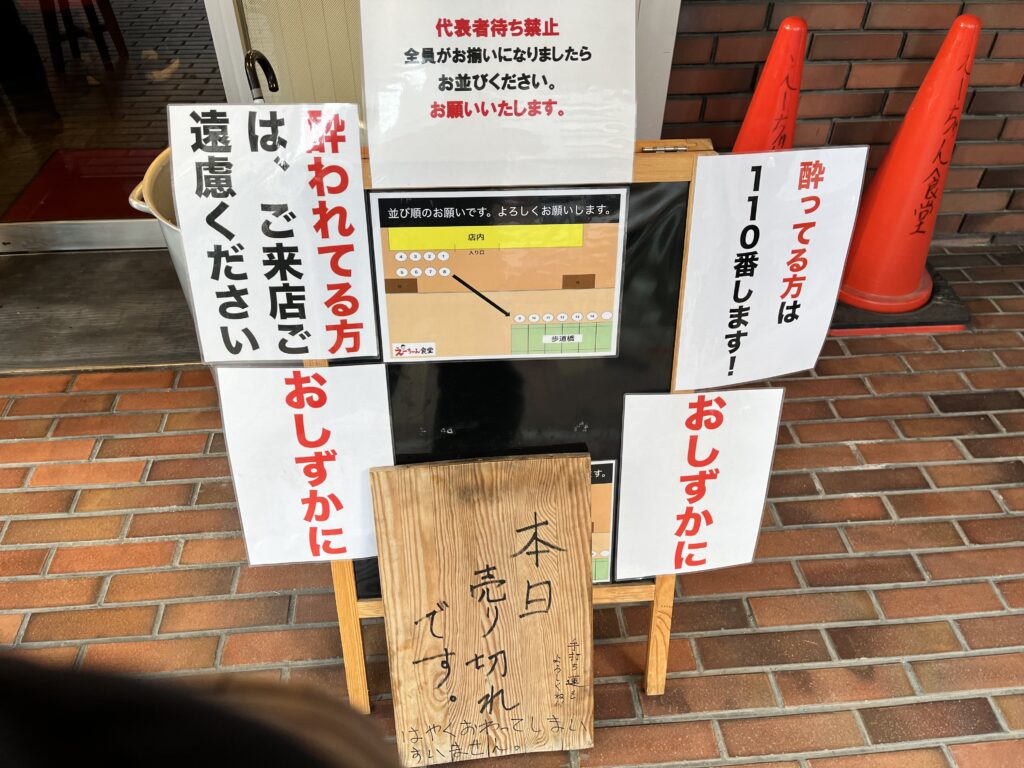 代表者待ち禁止
全員がお揃いになりましたら
お並びください。
お願いいたします。
酔われてる方
は、ご来店ご
遠慮ください
並び順のお願いです。よろしくお願いします。
店内
入り口
4 3 2 1
5 6 7 8
9 10 11 12 13 14
歩道橋
えーちゃん食堂
酔ってる方は
110番します!
おしずかに
おしずかに
す。
本日
売り切れ
です。
はやくおわってしまい
すいません。
えーちゃん食堂